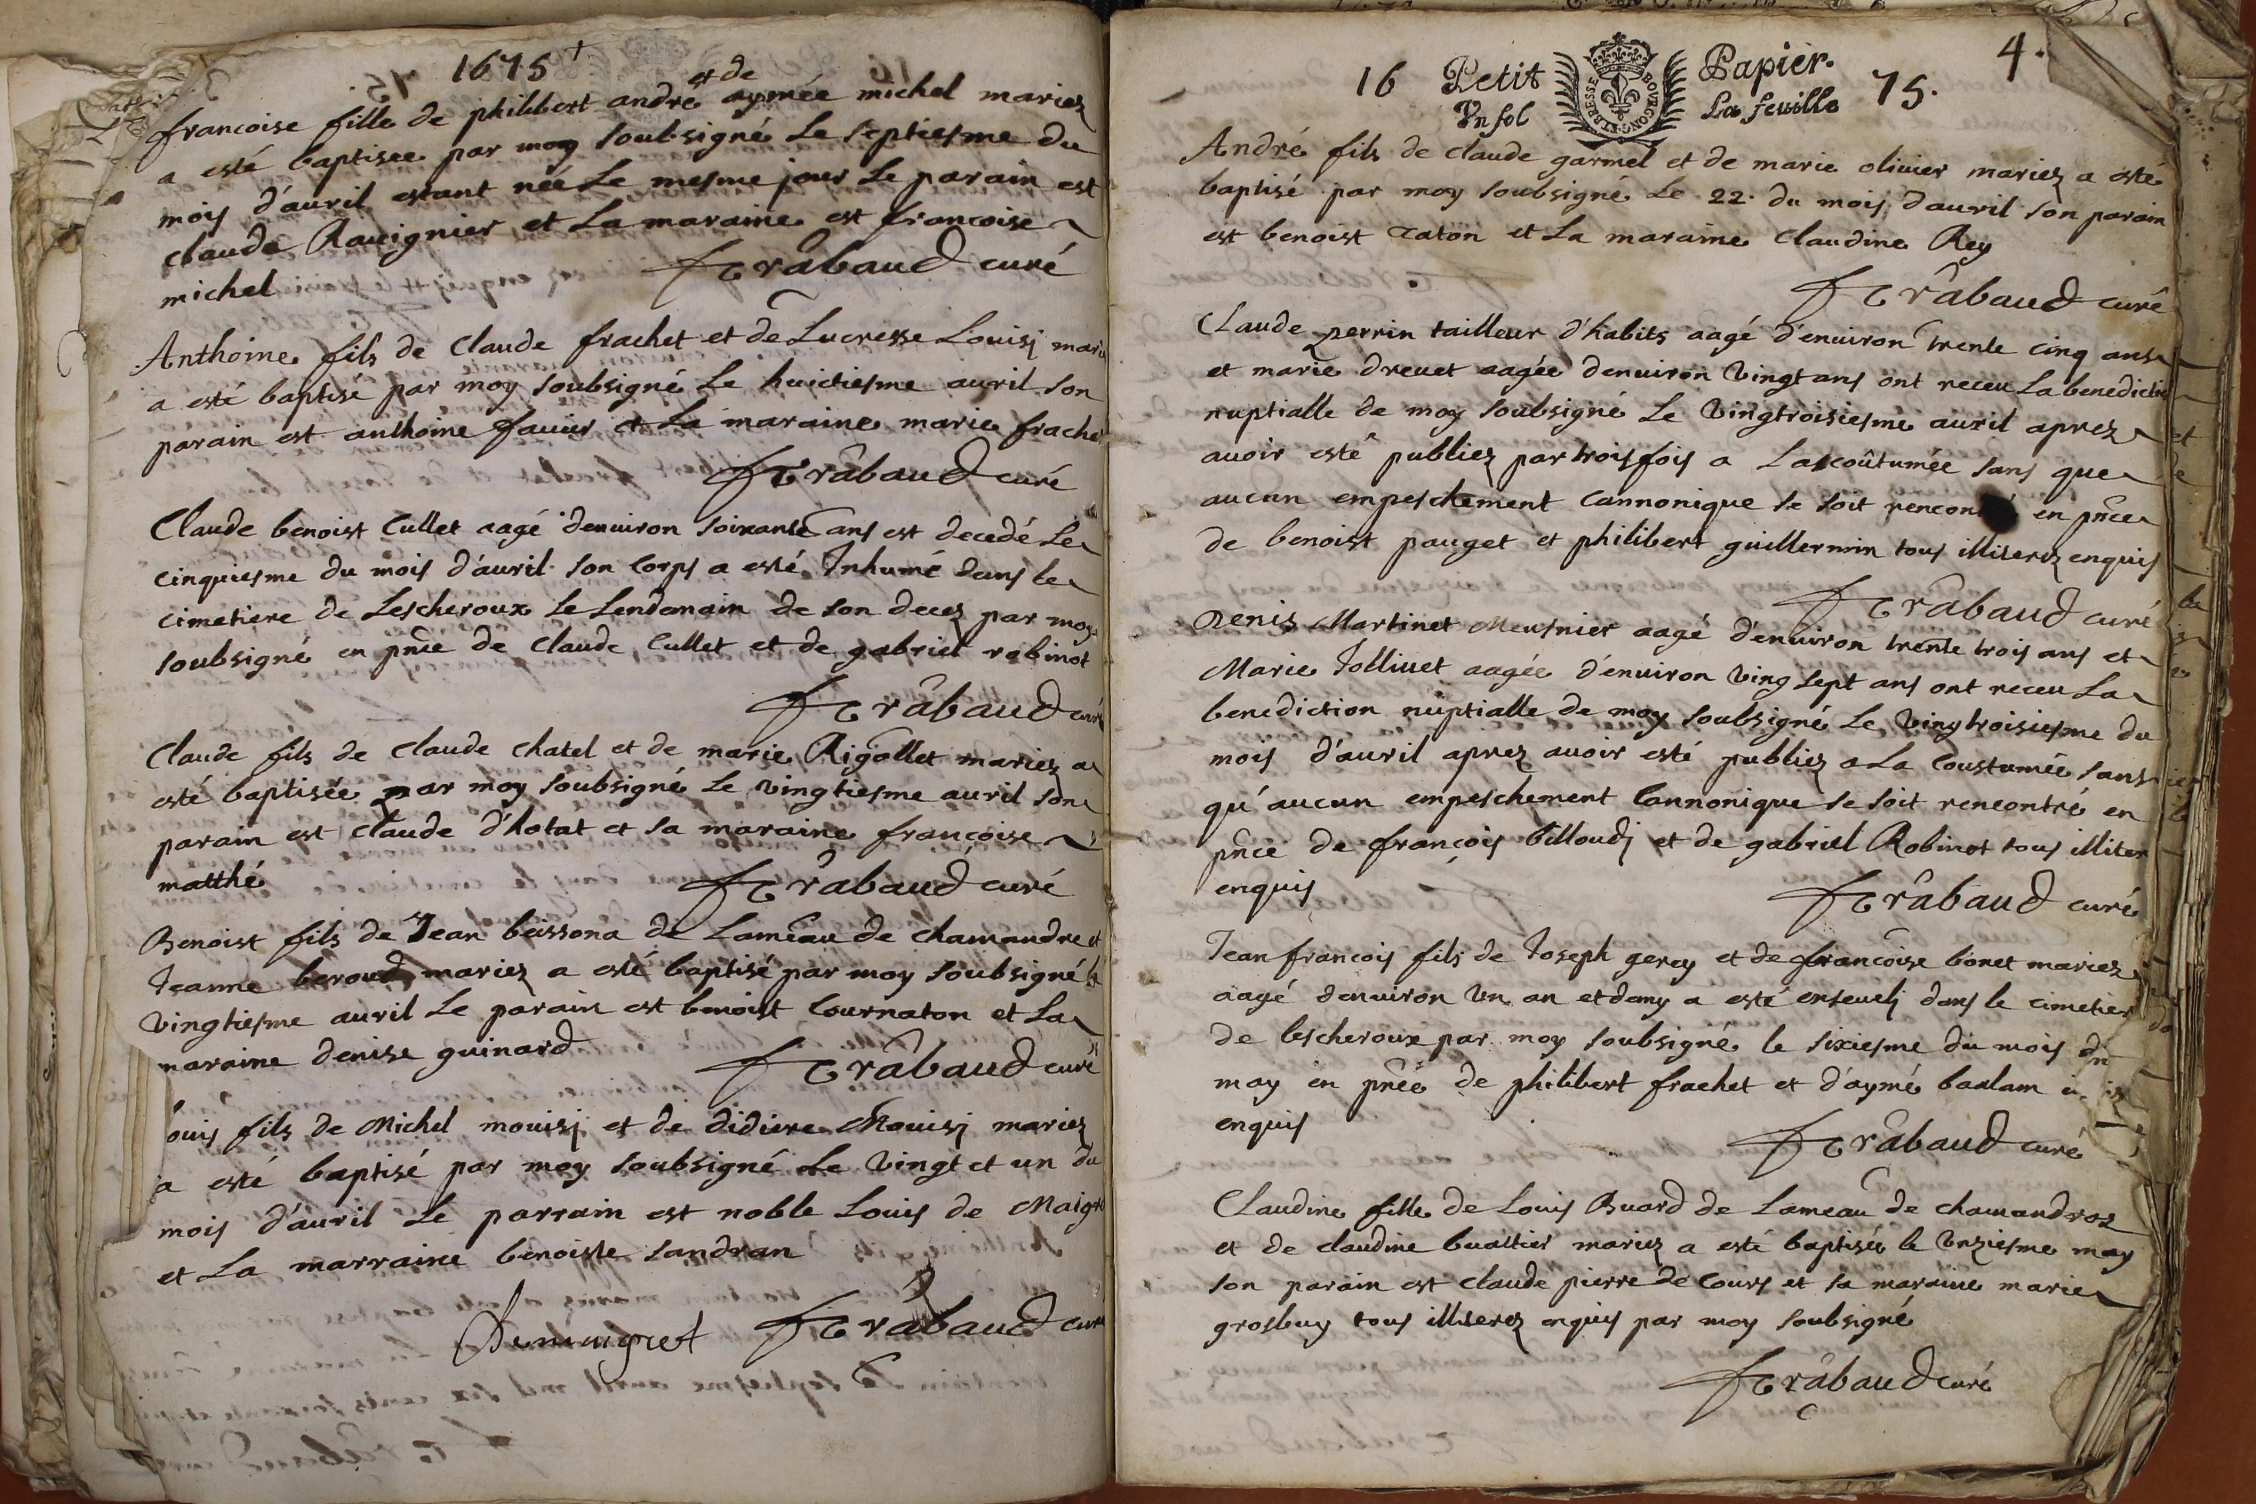 1675
francoise fille de philibert andré et de aymée michel mariez
a esté baptisee par moy soubsigné Le septiesme du
mois d'auril estant née Le mesme jour Le parain est
claude Rauignier et La maraine est francoise
michel
Trabaud curé
Anthoine fils de Claude frachet et de Lucresse Louisj mariez
a esté baptisé par moy soubsigné Le huictiesme auril son
parain est anthoine fauier et La maraine marie frachet
Trabaud curé
Claude benoist Cullet aagé denuiron soixante ans est decedé Le
cinquiesme du mois d'auril son Corps a esté Inhumé dans Le
cimetiere de Lescheroux Le Lendemain de son decez par moy
soubsigné en pñce de Claude Cullet et de gabriel robinot
Trabaud curé
Claude fils de Claude chatel et de marie Rigollet mariez a
esté baptisée par moy soubsigné Le vingtiesme auril son
parain est Claude d'hotat et sa maraine françoise
matthé
Trabaud curé
Benoist fils de Jean beissona de Lameau de chamandre et
Jeanne beroud mariez a esté baptisé par moy soubsigné Le
vingtiesme auril Le parain est benoist Cournaton et La
maraine denise guinard
Trabaud curé
ouis fils de Michel mouisj et de didiere Mouisj mariez
a esté baptisé par moy soubsigné Le vingt et un du
mois d'auril Le parrain est noble Louis de Maigret
et La marraine benoiste sandran
Demaigret Trabaud curé
4.
16 Petit Papier. 75.
Vn sol La feuille
BOVRGONG. ET BRESSE
André fils de claude garmel et de marie oliuier mariez a esté
baptisé par moy soubsigné Le 22. du mois d'auril son parain
est benoist caton et La maraine Claudine Rey
Trabaud curé
Claude perrin tailleur d'habits aagé d'enuiron trente cinq ans
et marie dreuet aagée denuiron vingt ans ont receu La benedictio
nuptialle de moy soubsigné Le vingtroisiesme auril aprez
auoir esté publiez par trois fois a Lacoûtumée sans que
aucun empeschement cannonique se soit rencon en pñce
de benoist pauget et philibert guillermin tous illiterez enquis
Trabaud curé
Denis Martinet Meusnier aagé d'enuiron trente trois ans et
Marie Jolliuet aagée d'enuiron ving sept ans ont receu La
benediction nuptialle de moy soubsigné Le vingtroisiesme du
mois d'auril aprez auoir esté publiez a La Coustumée sans
qu'aucun empeschement Cannonique se soit rencontré en
pñce de françois billoudj et de gabriel Robinot tous illiter
enquis
Trabaud curé
Jean francois fils de Joseph gerey et de francoise bonet mariez
aagé denuiron vn an et demy a esté enseuelj dans le cimetier
de lescheroux par moy soubsigné le sixiesme du mois de
may en pñce de philibert frachet et d'aymé baalam
enquis
Trabaud curé
Claudine fille de Louis Buard de Lameau de chamandroz
et de claudine buattier mariez a esté baptisée le vnziesme may
son parain est claude pierre de Cours et sa maraine marie
grosbuy tous illiterez enquis par moy soubsigné
Trabaud curé